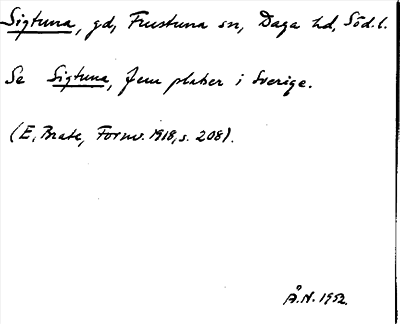 Sigtuna, gd, Frustuna sn, Daga hd, Söd. l.
Se Sigtuna, fem platser i Sverige.
(E. Brate, Fornv. 1918, s. 208).
Å.N. 1952